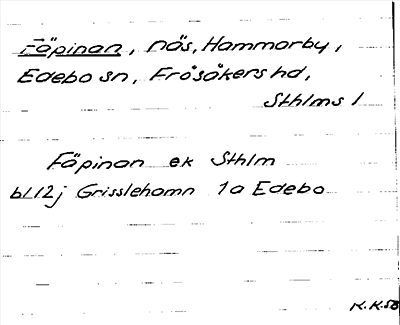 Fäpinan, näs, Hammarby,
Edebo sn, Frösåkers hd,
Sthlms l
Fäpinan ek Sthlm
bl 12j Grisslehamn 1a Edebo
K.K.58